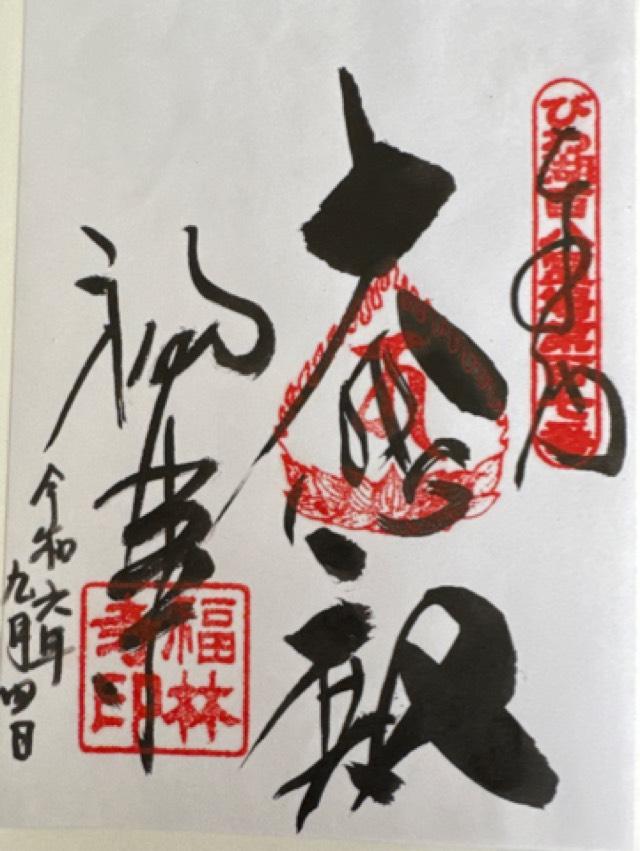 奉拝
びわ湖百八霊場第七番
大悲殿
福林寺
福林寺印
令和六年
九月四日